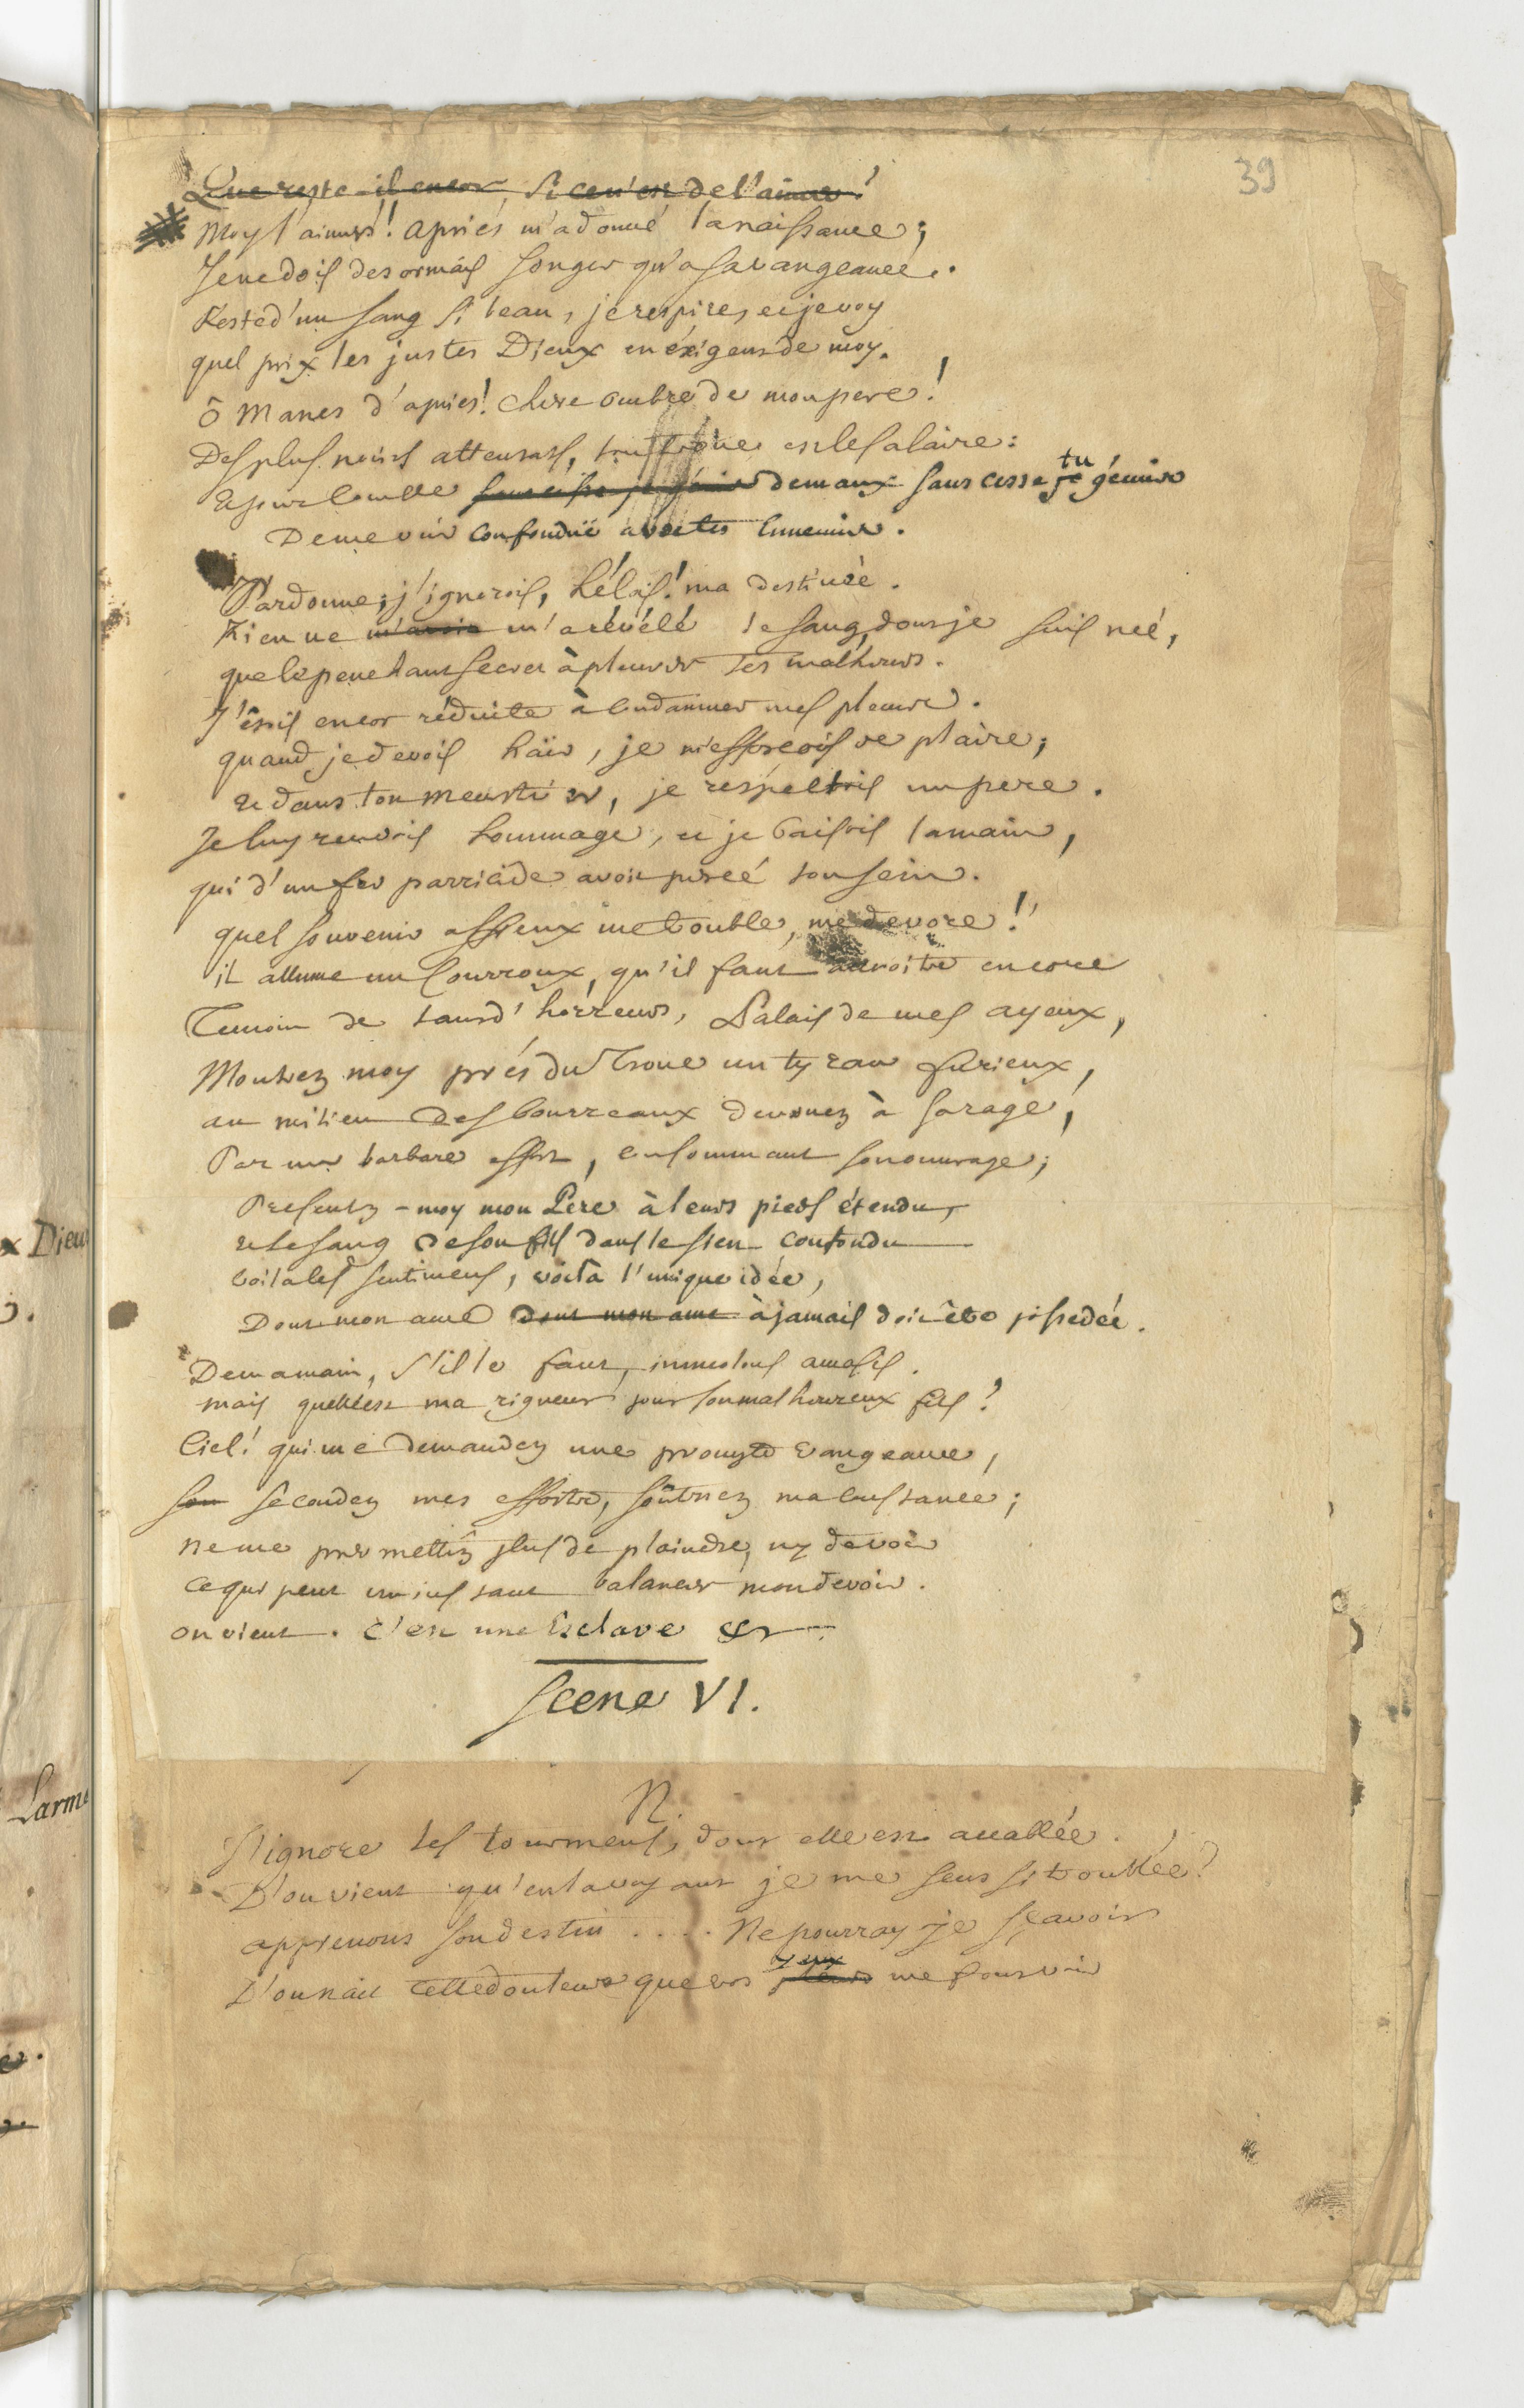 39
Que reste-il encor, si ce n'est de l'aimer?
Moy l'aimer! apriés m'a donné la naissance;
Je ne dois desormais songer qu'a sa vangeance.
Reste d'un sang si beau, je respire, et je voy
quel prix les justes Dieux en éxigent de moy.
ô Manes d'apriés! chere ombre de mon pere!
Des plus noirs attentats, ton trône est le salaire:
Et pour comble sans cesse je gémir de maux sans cesse je tu gémir
De me voir confonduë avec tes Ennemis.
Pardonne; j'ignorois, hélas! ma destinée.
Rien ne m'avoit m'a révélé le sang, dont je suis né,
que le penchant secret à pleurer tes malheurs.
J'étois encor réduite à condamner mes pleurs.
quand je devois haïr, je m'efforçois de plaire;
et dans ton meurtrier, je respectois un pere.
Je luy rendois hommage, et je baisois la main,
qui d'un fer parricide avoit percé ton sein.
quel souvenir affreux me trouble, me devore!
il allume un Courroux, qu'il faut accroître encore
Temoin de tant d'horreurs, Palais de mes ayeux,
Montrez moy prés du Trone un tyran furieux,
au milieu des bourreaux devouez à sa rage,
Par un barbare effort, consommant son ouvrage;
Presentez-moy mon Pere à leurs pieds étendu,
et le sang de son fils dans le sien confondu
Voila les sentimens, voila l'unique idée,
Dont mon ame dont mon ame à jamais doit être possedée.
De ma main, s'il le faut, immolons amasis.
mais quelle est ma rigueur pour son malheureux fils?
Ciel! qui me demandez une prompte vangeance,
son secondez mes efforts, soûtenez ma constance;
ne me permettez plus de plaindre, ny de voir
ce qui peut un instant balancer mon devoir.
on vient. c'est une Esclave &c
Scene VI.
N.
J'ignore les tourmens, dont elle est accablée.
D'ou vient qu'en la voyant je me sens si troublée?
apprenons son destin .... Ne pourray je sçavoir
D'ou nait cette douleur que vos pleurs yeux me font voir
x Dieu
Larme